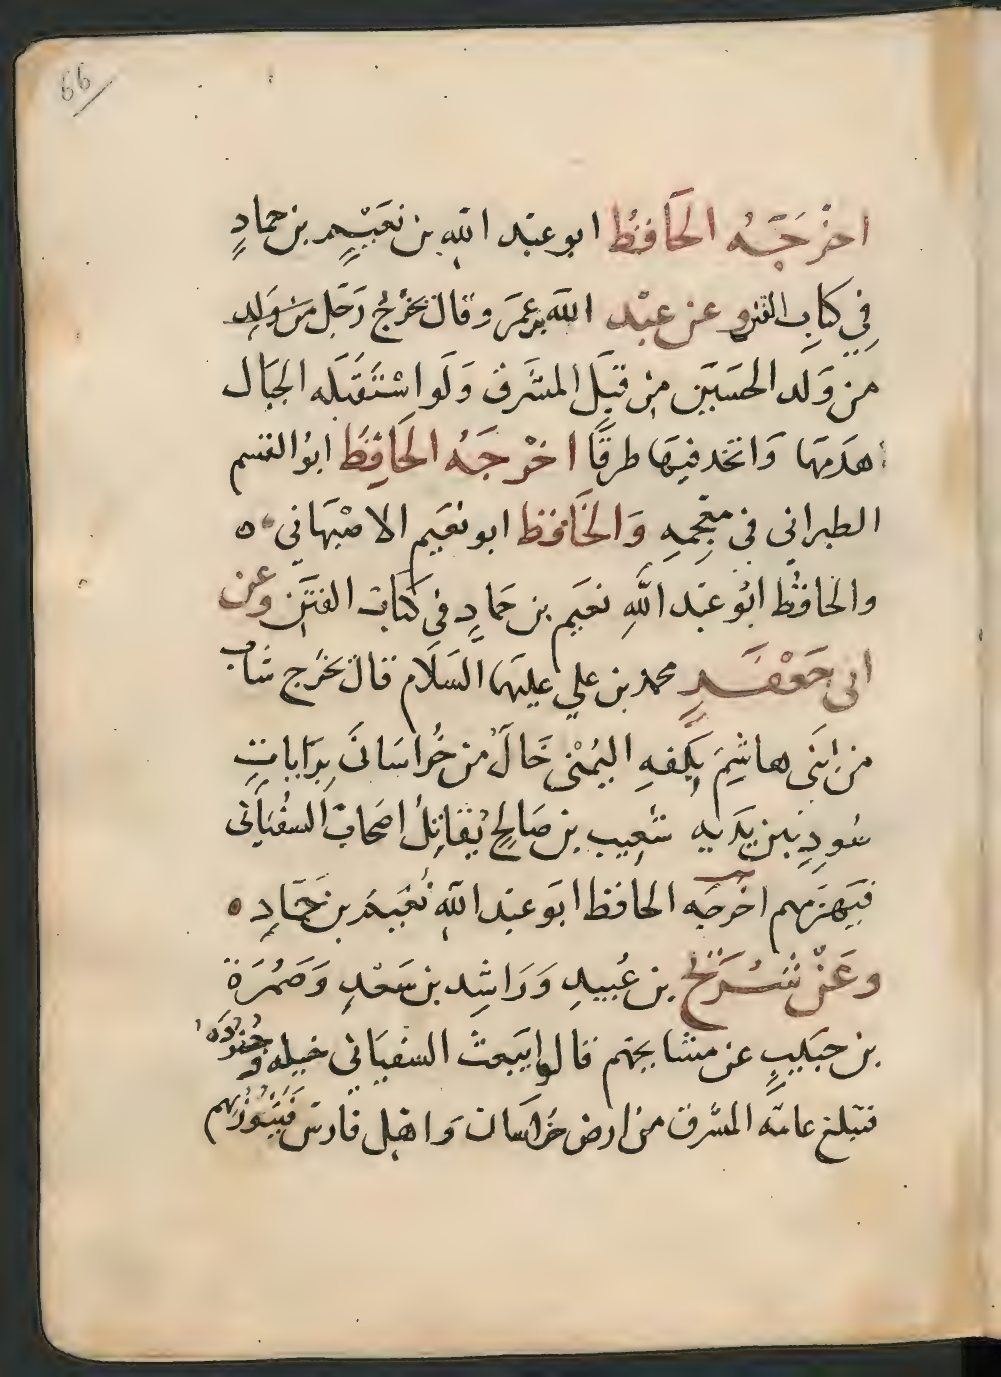 66
اخرجه الحافظ ابو عبد الله بن نعيم بن حمادٍ
في كتاب الفتن وعن عبد الله بن عمر وقال يخرج رجل من ولد
من ولد الحسين من قبل المشرق ولو استقبله الجبال
هدمها واتخد فيها طرقا اخرجه الحافظ ابو القسم
الطبراني في معجمه والحافظ ابو نعيم الاصبهاني ٥
والحافظ ابو عبد الله نعيم بن حمادٍ في كتاب الفتن وعن
ابى جعفرٍ محمد بن علي عليهما السلام قال يخرج شاب
من بنى هاشم بكفه اليمنى خال من خراسان برايات
سودٍ بين يديه شعيب بن صالح يقاتل اصحاب السفياني
فيهزمهم اخرجه الحافظ ابو عبد الله نعيم بن حمادٍ ٥
وعن شريح بن عبيدٍ وراشد بن سعدٍ وضمرة
بن حبيبٍ عن مشايخهم قالوا يبعث السفياني خيله وجنوده
فتبلغ عامة المشرق من ارض خراسان واهل فارس فيثورنهم